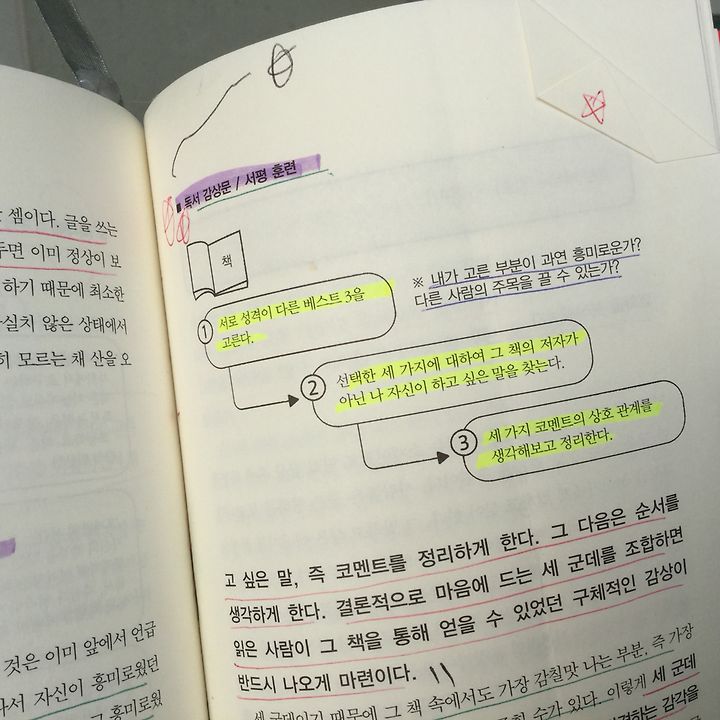 셈이다. 글을 쓰는
두면 이미 정상이 보
하기 때문에 최소한
실치 않은 상태에서
모르는 채 산을 오
것은 이미 앞에서 언급
자신이 흥미로웠던
흥미로웠
■ 독서 감상문 / 서평 훈련
책
※ 내가 고른 부분이 과연 흥미로운가?
다른 사람의 주목을 끌 수 있는가?
① 서로 성격이 다른 베스트 3을
고른다.
② 선택한 세 가지에 대하여 그 책의 저자가
아닌 나 자신이 하고 싶은 말을 찾는다.
③ 세 가지 코멘트의 상호 관계를
생각해보고 정리한다.
고 싶은 말, 즉 코멘트를 정리하게 한다. 그 다음은 순서를
생각하게 한다. 결론적으로 마음에 드는 세 군데를 조합하면
읽은 사람이 그 책을 통해 얻을 수 있었던 구체적인 감상이
반드시 나오게 마련이다.
세 군데이기 때문에 그 책 속에서도 가장 감칠맛 나는 부분, 즉 가장
수가 있다. 이렇게 세 군데
감각을